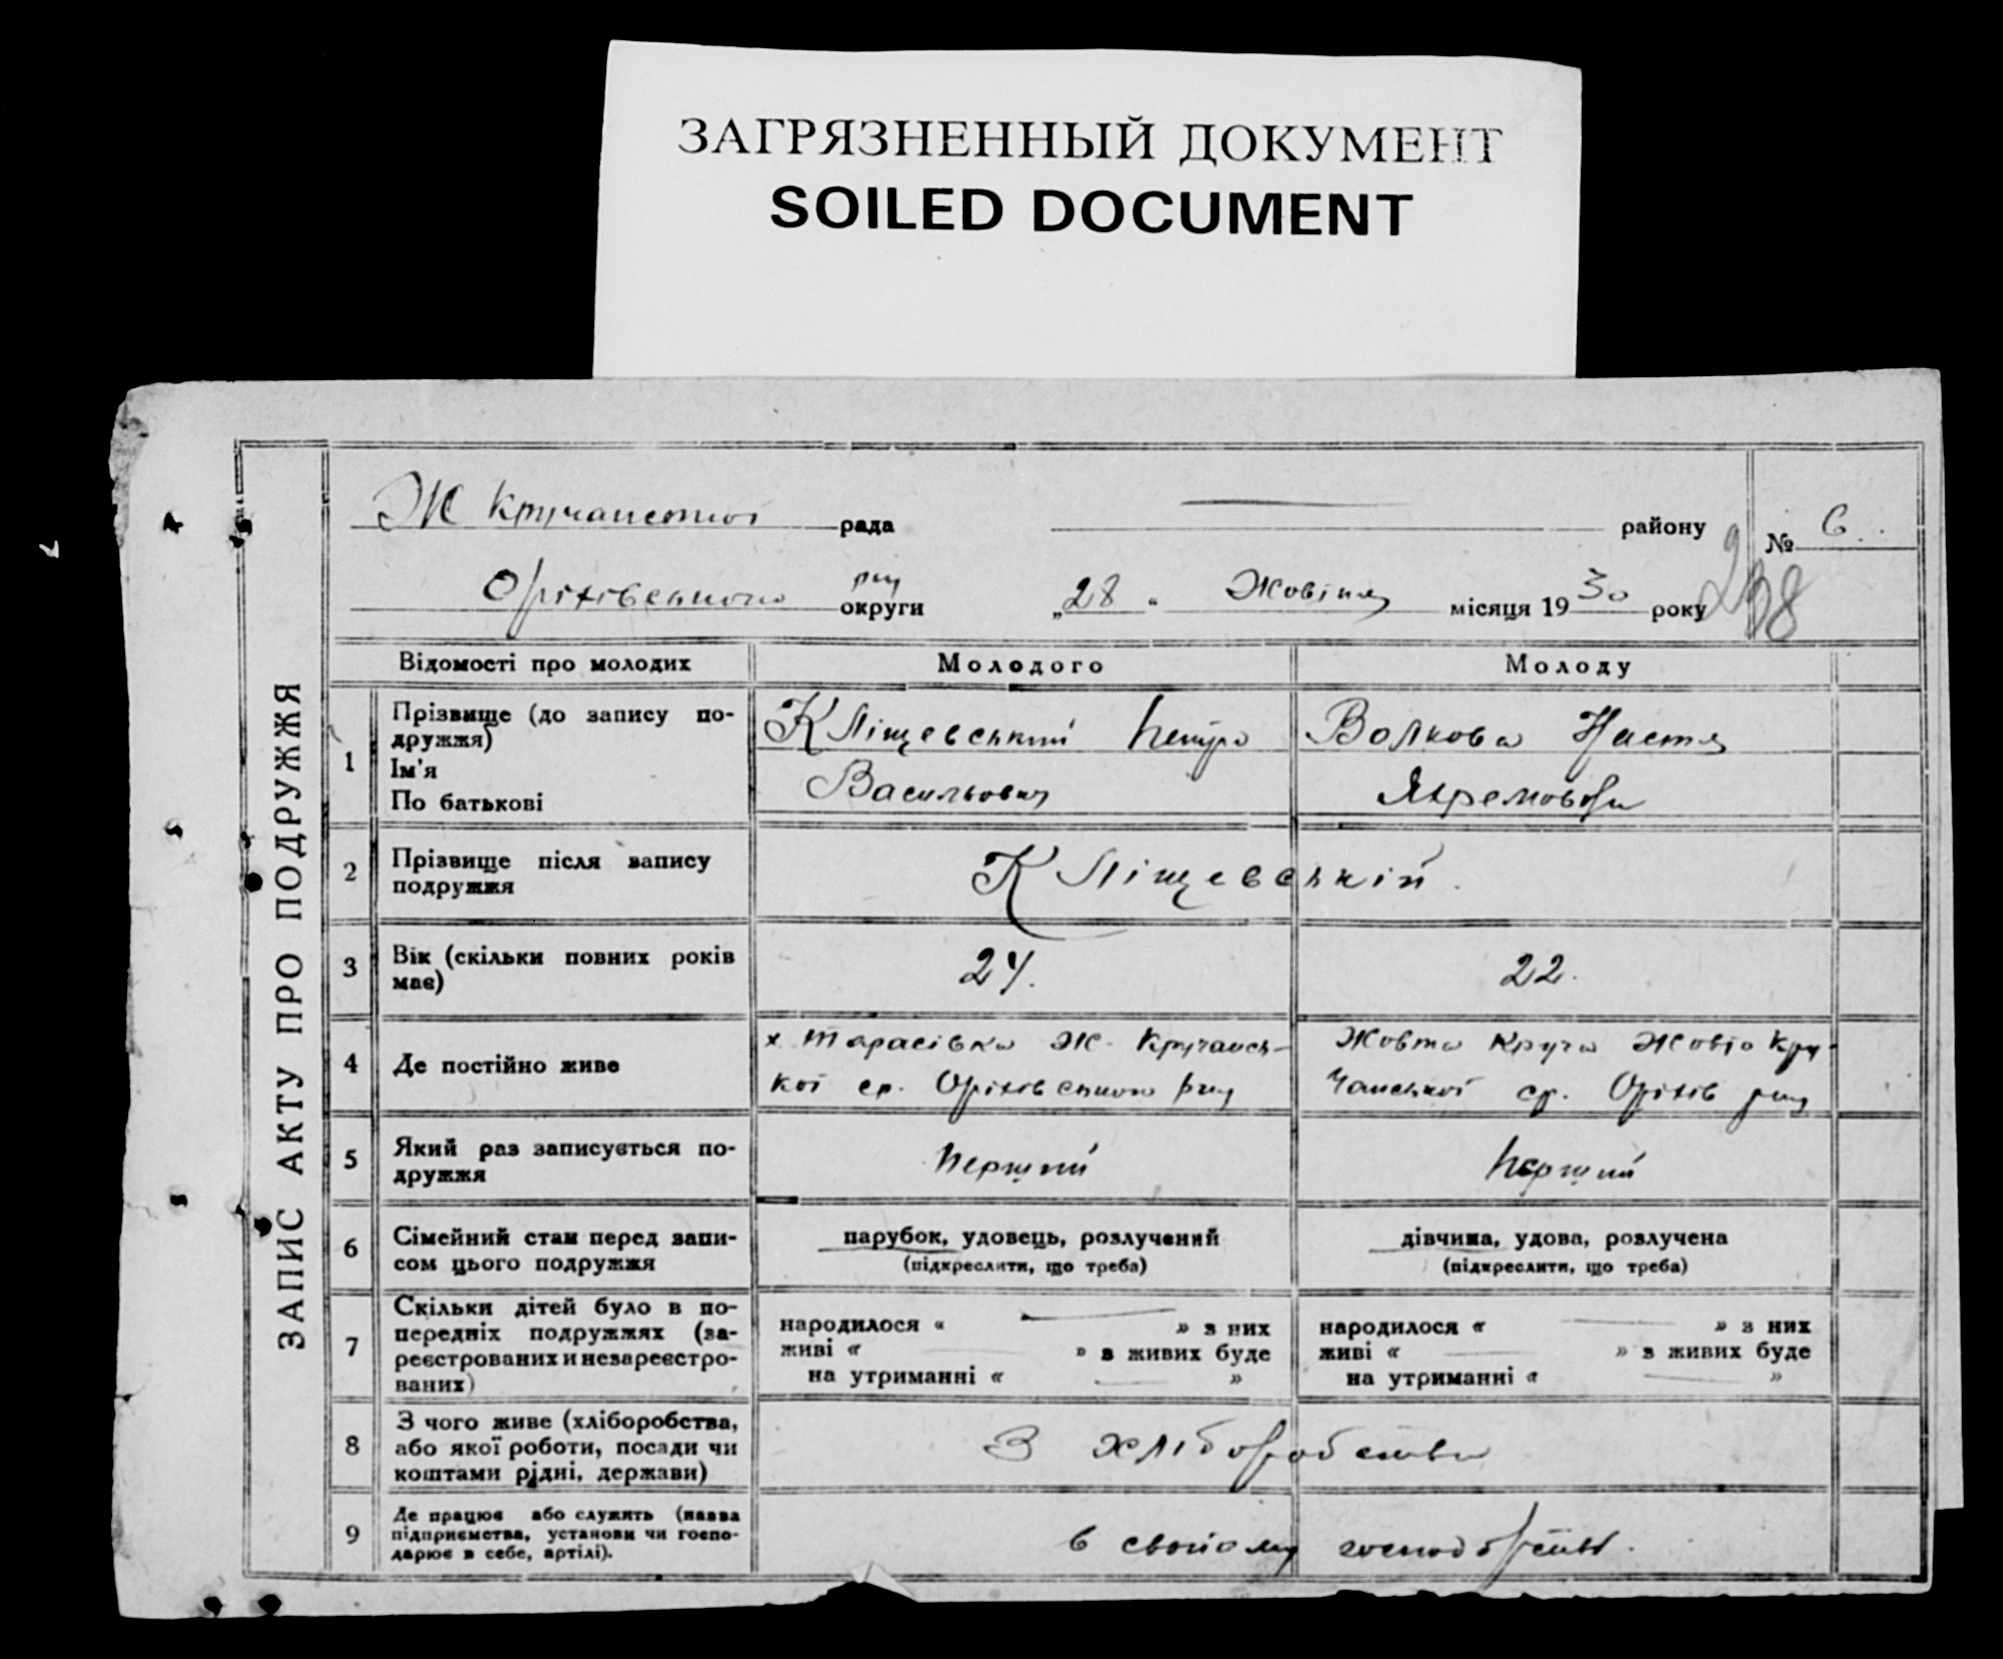 ЗАГРЯЗНЕННЫЙ ДОКУМЕНТ
SOILED DOCUMENT
ЗАПИС АКТУ ПРО ПОДРУЖЖЯ
Ж Кручанської рада району № 6
Оріхівського рну округи „28“ Жовтня місяця 1930 року 238
Відомості про молодих Молодого Молоду
1 Прізвище (до запису подружжя) Ім'я По батькові
Кліщевський Петро
Васильович
Волкова Настя
Яхремовна
2 Прізвище після запису подружжя
Кліщевський
3 Вік (скільки повних років має)
24. 22.
4 Де постійно живе
х Тарасівка Ж. Кручансь-
кої ср. Оріхівського рну
Жовта Круча Жовто Кру-
чанської ср. Оріхів рну
5 Який раз записується по-
дружжя
Перший Перший
6 Сімейний стан перед запи-
сом цього подружжя
парубок, удовець, розлучений
(підкреслити, що треба)
дівчина, удова, розлучена
(підкреслити, що треба)
7 Скільки дітей було в по-
передніх подружжях (за-
реєстрованих и незареєстро-
ваних)
народилося « » з них
живі « » з живих буде
на утриманні « »
народилося « » з них
живі « » з живих буде
на утриманні « »
8 З чого живе (хліборобства,
або якої роботи, посади чи
коштами рідні, держави)
З хліборобства
9 Де працює або служить (назва
підприємства, установи чи госпо-
дарює в себе, артілі).
в свойому господарстві.